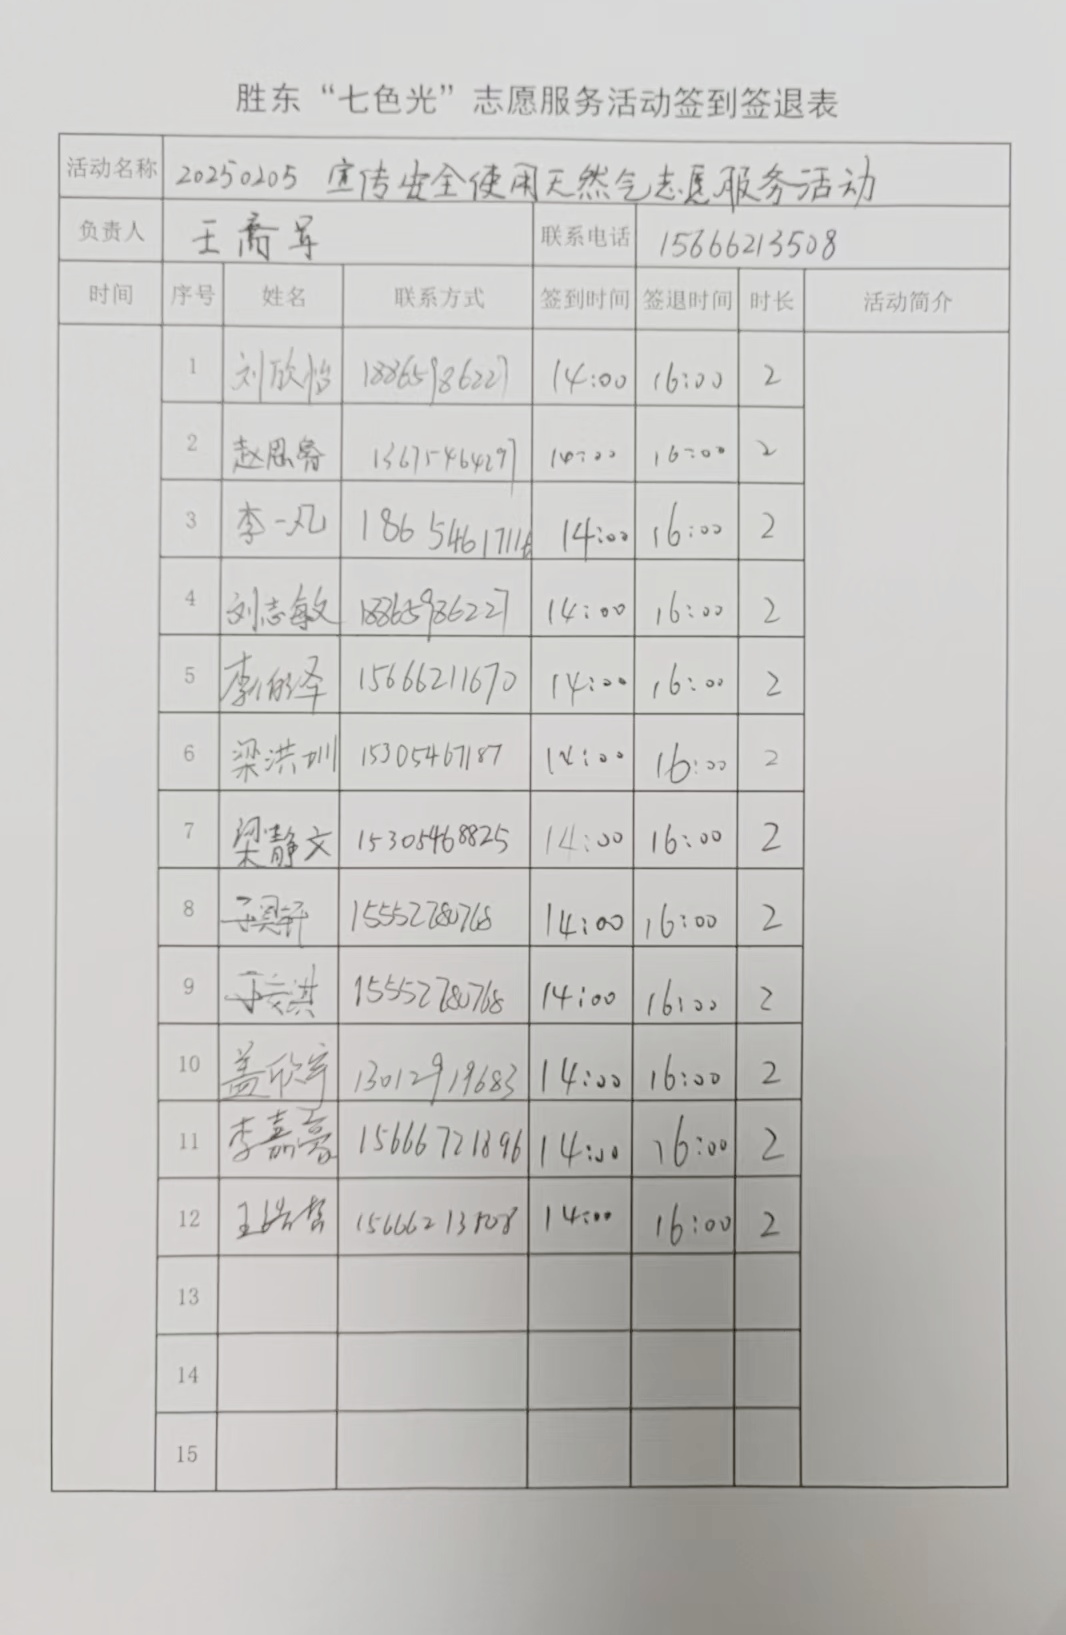 胜东“七色光”志愿服务活动签到签退表
活动名称 20250205 宣传安全使用天然气志愿服务活动
负责人 王 军 联系电话 15666213508
时间 序号 姓名 联系方式 签到时间 签退时间 时长 活动简介
1 刘欣怡 18865986227 14:00 16:00 2
2 赵思睿 13675464297 14:00 16:00 2
3 李一凡 14:00 16:00 2
4 刘志敏 18865986227 14:00 16:00 2
5 李 泽 15666211670 14:00 16:00 2
6 梁洪圳 15305467187 14:00 16:00 2
7 梁静文 15305468825 14:00 16:00 2
8 15552780768 14:00 16:00 2
9 15552780768 14:00 16:00 2
10 盖欣宇 13012919683 14:00 16:00 2
11 李嘉豪 15666721896 14:00 16:00 2
12 王浩哲 15666213508 14:00 16:00 2
13
14
15